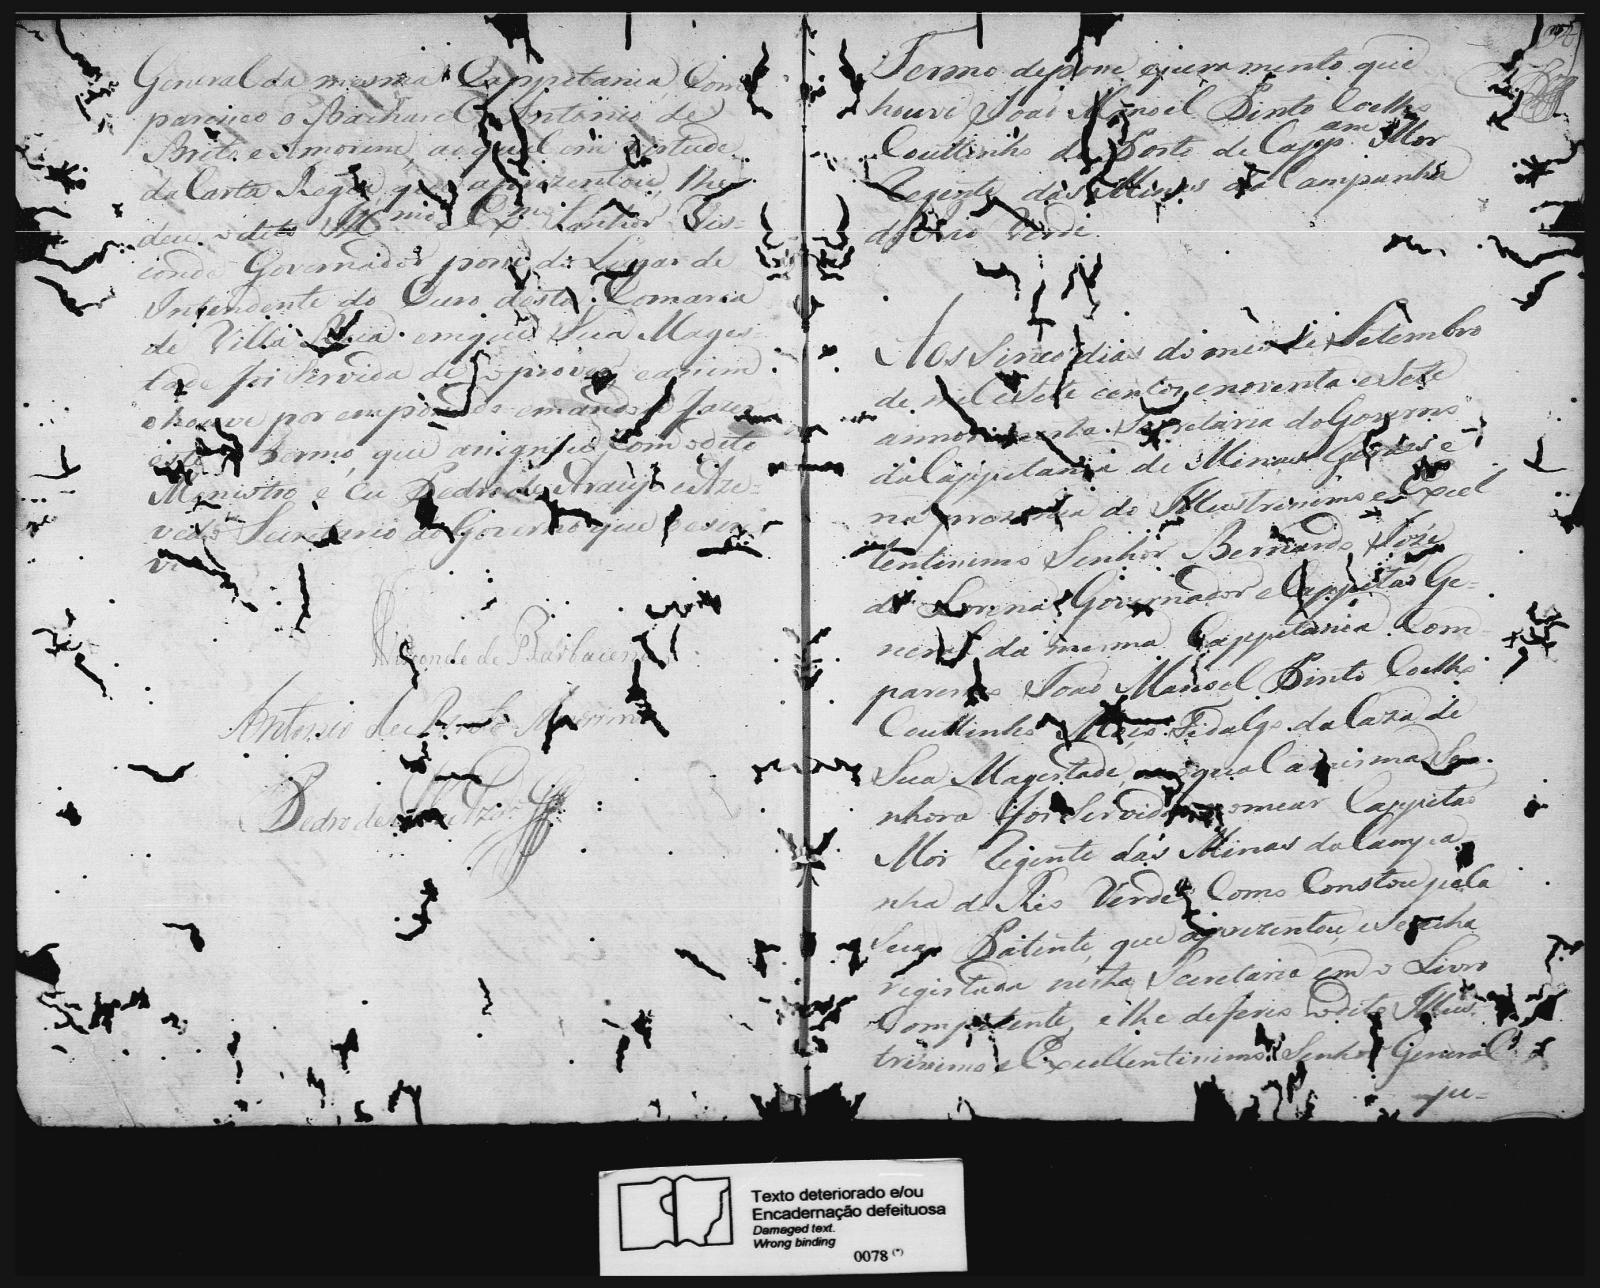 General da mesma Cappitania, Com
pareceo o Bacharel Antonio de
Brito e Amorim, ao qual em vertude
da Carta Regia, que aprezentou, lhe
deu o dito Senhor Vis-
conde Governador posse do Lugar de
Intendente do Ouro desta Comarca
de Villa Rica, em que Sua Mages-
tade foi Servida de o prover, e assim
o houve por empossado e mandou fazer
este Termo, que asignou com o dito
Ministro e Eu Pedro de Araujo e Aze-
vedo Secretario do Governo que o escre
vi
Visconde de Barbacena
Antonio de Brito Amorim
Pedro de
Termo de posse e juramento que
houve João Manoel Pinto Coelho
Couttinho do Posto de Capp.am Mor
Regente das Minas da Campanha
do Rio Verde
Aos Sinco dias do mes de Setembro
de mil e Sete centos, e noventa e Sete
annos nesta Secretaria do Governo
da Cappitania de Minas Geraes e
na prezença do Illustrissimo e Excel
lentissimo Senhor Bernardo Jozé
de Lorena Governador e Cappitão Ge-
neral da mesma Cappitania Com-
pareceo João Manoel Pinto Coelho
Couttinho Fidalgo da Caza de
Sua Magestade, ao qual a mesma Se-
nhora foi Servida nomear Cappitão
Mor Regente das Minas da Campa-
nha do Rio Verde Como Constou pela
Sua Patente, que aprezentou, e Se acha
registada nesta Secretaria em o Livro
Competente, e lhe deferio o dito Illus-
trissimo e Excellentissimo Senhor General
ju-
Texto deteriorado e/ou
Encadernação defeituosa
Damaged text.
Wrong binding
0078 (*)